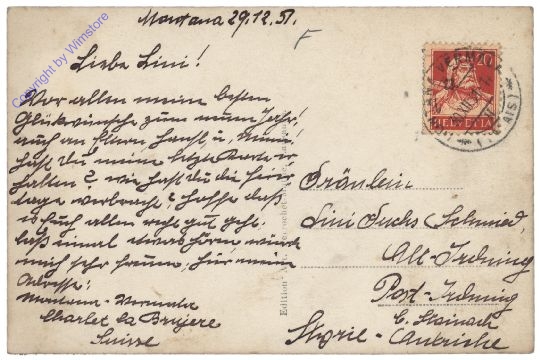 Montana 29.12.51.
F
Liebe Lini!
Vor allem meine besten
Glückwünsche zum neuen Jahr,
auch an Eltern, Hansl, u. Mimi!
hast du meine letzte Karte er-
halten? wie hast du die Feier-
tage verbracht? Hoffe daß
es Euch allen recht gut geht.
laß einmal etwas hören würde
mich sehr freuen, hier meine
Adresse:
Montana-Vermala
Chalet la Bruyere
Suisse
Fräulein
Lini Fuchs Schmied,
Alt-Irdning
Post-Irdning
b. Stainach
Styrie-Autriche
20
HELVETIA
Edition
Copyright by Wimstore